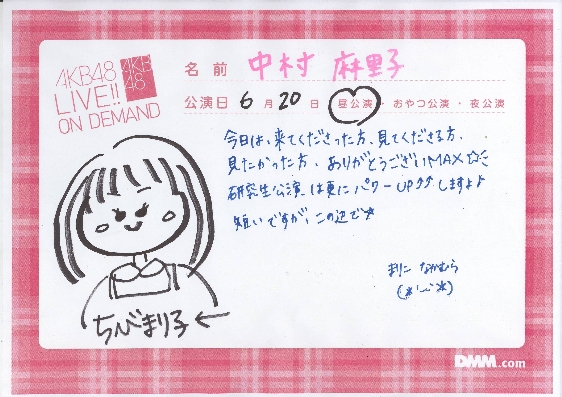 AKB48
LIVE!!
ON DEMAND
AKB
48
名前 中村 麻里子
公演日 6月20日 昼公演・おやつ公演・夜公演
今日は、来てくださった方、見てくださる方、
見たかった方、ありがとうございMAX☆ミ
研究生公演、は更にパワーUP⤴⤴しますよ♪
短いですが、この辺で★
まりこ なかむら
ちびまり子←
DMM.com